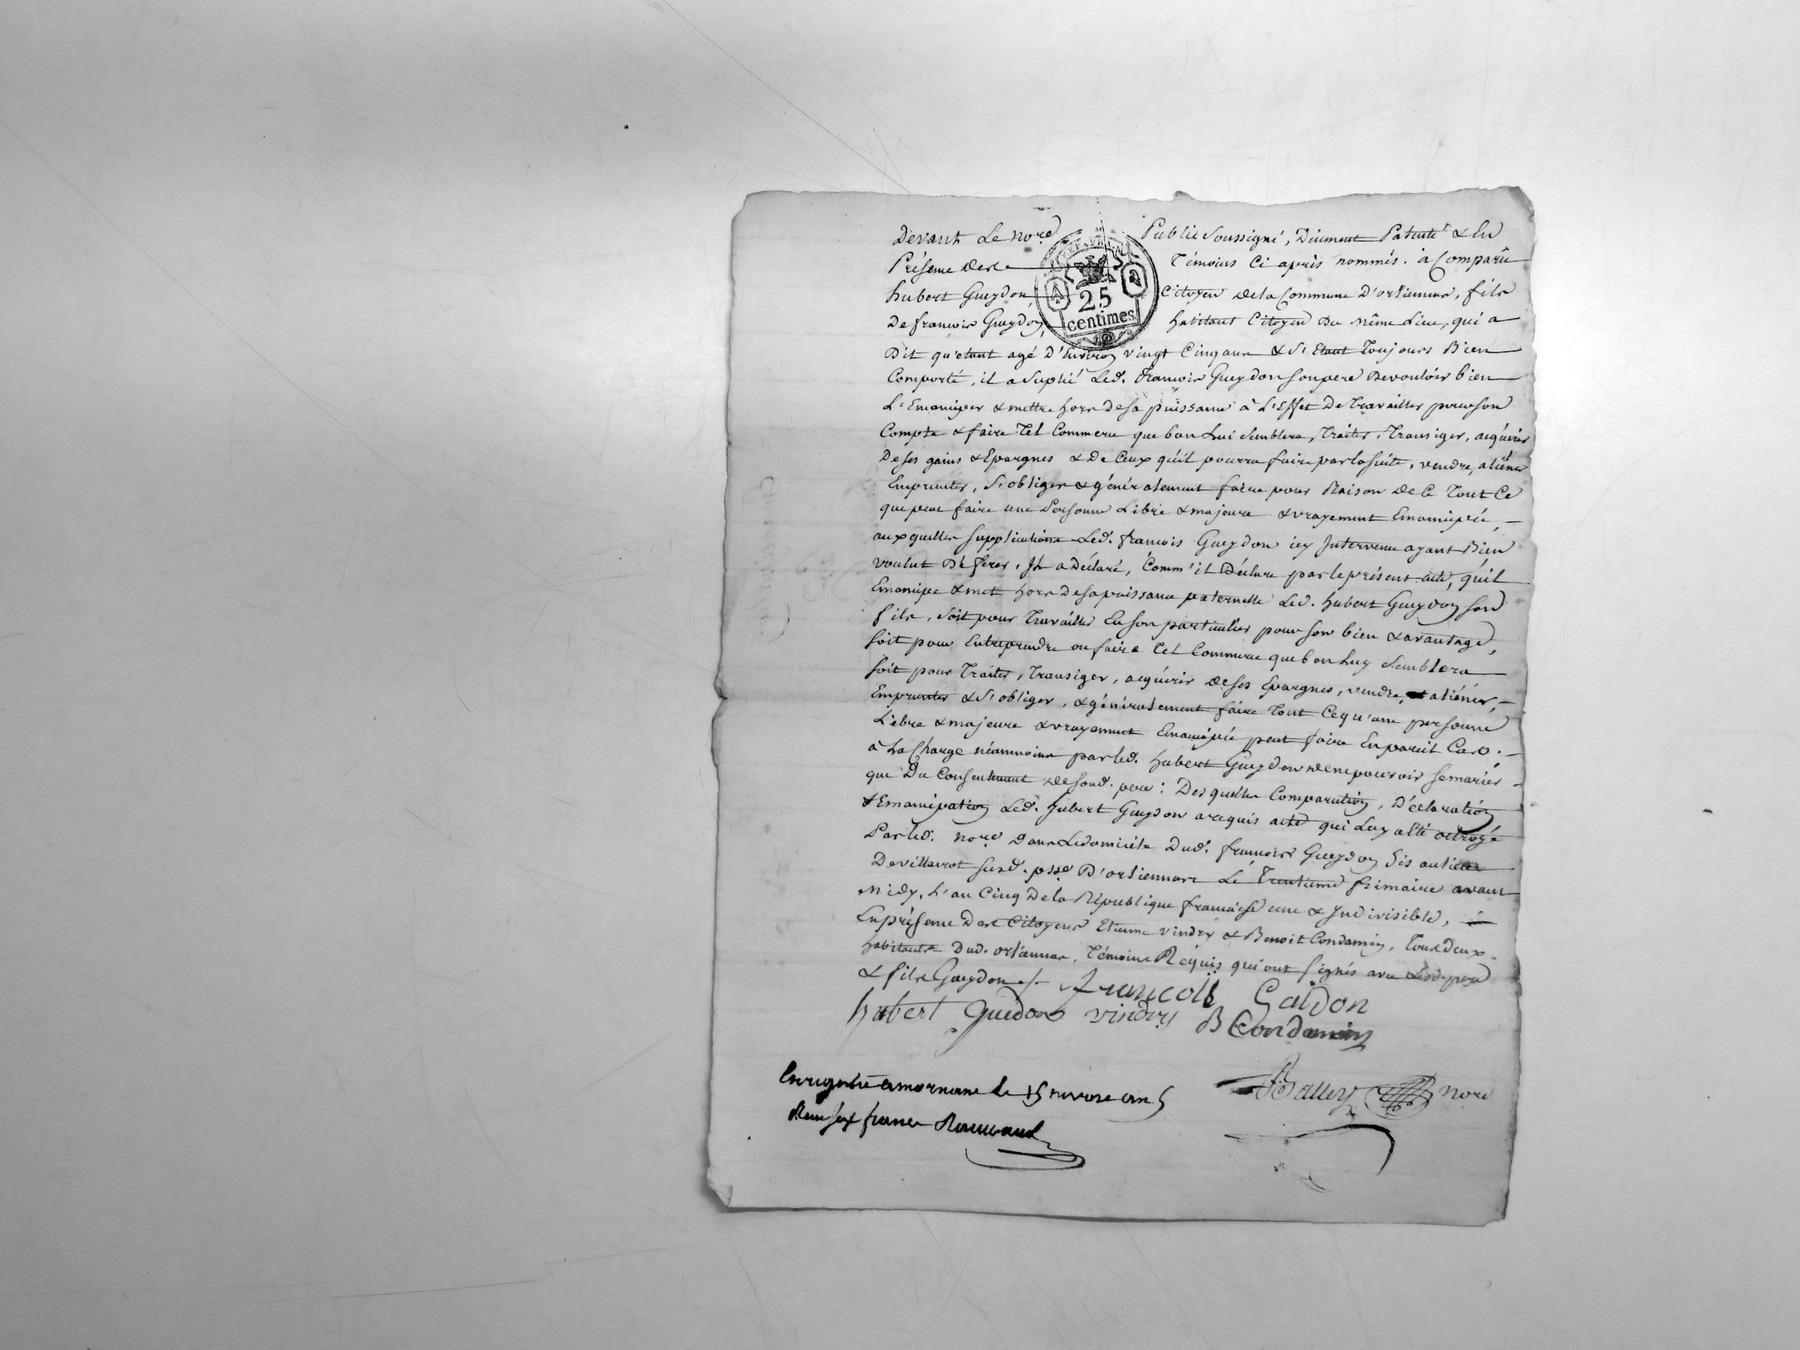 Devant Le no.re Public Soussigné, Düement Patenté & En
Présence des Témoins Ci après nommés. à Comparû
hubert Gueydon, Citoyen de la Commune D'orlienner, fils
De françois Gueydon, habitant Citoyen Du même Lieu, qui a
Dit qu'etant agé D'Environ vingt Cinq ans & S'Etant Toujours Bien
Comporté, il a Suplié Led. françois Gueydon son pere De vouloir bien
L'Emanciper & mettre hors de sa puissance à L'Effet De Travailler pour son
Compte & faire Tel Commerce que bon Lui Semblera, Traiter, Transiger, acquérir
De ses gains & Epargnes & De Ceux qu'il pourra faire par la suite, vendre, aliéner
Emprunter, S'obliger & généralement faire pour Raison De Ce Tout Ce
que peut faire une Personne Libre & majeure & vrayement Emancipée,
auxquelles Supplications Led. francois Gueydon icy Intervenu ayant Bien
voulut Déférer, Il a Déclaré, Comm'il Déclare par le présent acte, qu'il
Emancipe & met hors de sa puissance paternelle Led. hubert Gueydon son
fils, Soit pour Travailler En son particulier pour son bien & avantage,
soit pour Entreprendre ou faire Tel Commerce que bon Luy Semblera
soit pour Traiter, Transiger, acquérir de ses Epargnes, vendre, aliéner,
Emprunter & S'obliger, & généralement faire Tout Ce qu'une personne
Libre & majeure & vrayement Emancipée peut faire En pareil Cas.
à La Charge néammoins par led. hubert Gueydon de ne pouvoir se marier
que Du Consentement de sond. pere : Desquelles Comparution, Déclaration
& Emancipation Led. hubert Gueydon a requis acte qui Luy a Eté octroyé
Par led. no.re Dans Le domicile Dud. francois Gueydon Sis au lieu
De villevrot susd. psse D'orliennas Le Trentieme frimaire avant
Midy, L'an Cinq De la République francaise une & Indivisible,
En présence Des Citoyens Etienne vindry & Benoit Condamin, Tous Deux
habitants Dud. orliennas, Témoins Requis qui ont signés avec Lesd. pere
& fils Gueydon ./.
françois Gaidon
hubert Guidon vindry B Condamin
Enregistré a mornan le 15 nivose an 5
Balley no.re
Reçu six francs
25
centimes